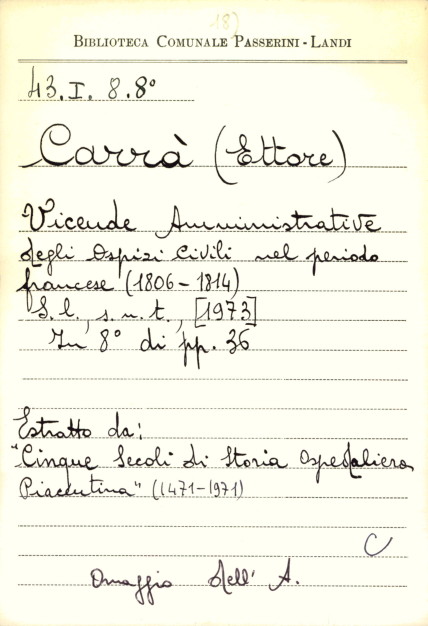 18)
BIBLIOTECA COMUNALE PASSERINI-LANDI
43.I. 8.8°
Carrà (Ettore)
Vicende Amministrative
degli Ospizi Civili nel periodo
francese (1806-1814)
S. l., s. n. t., [1973]
In 8° di pp. 36
Estratto da:
"Cinque Secoli di Storia Ospedaliera
Piacentina" (1471-1971)
C
Omaggio dell' A.